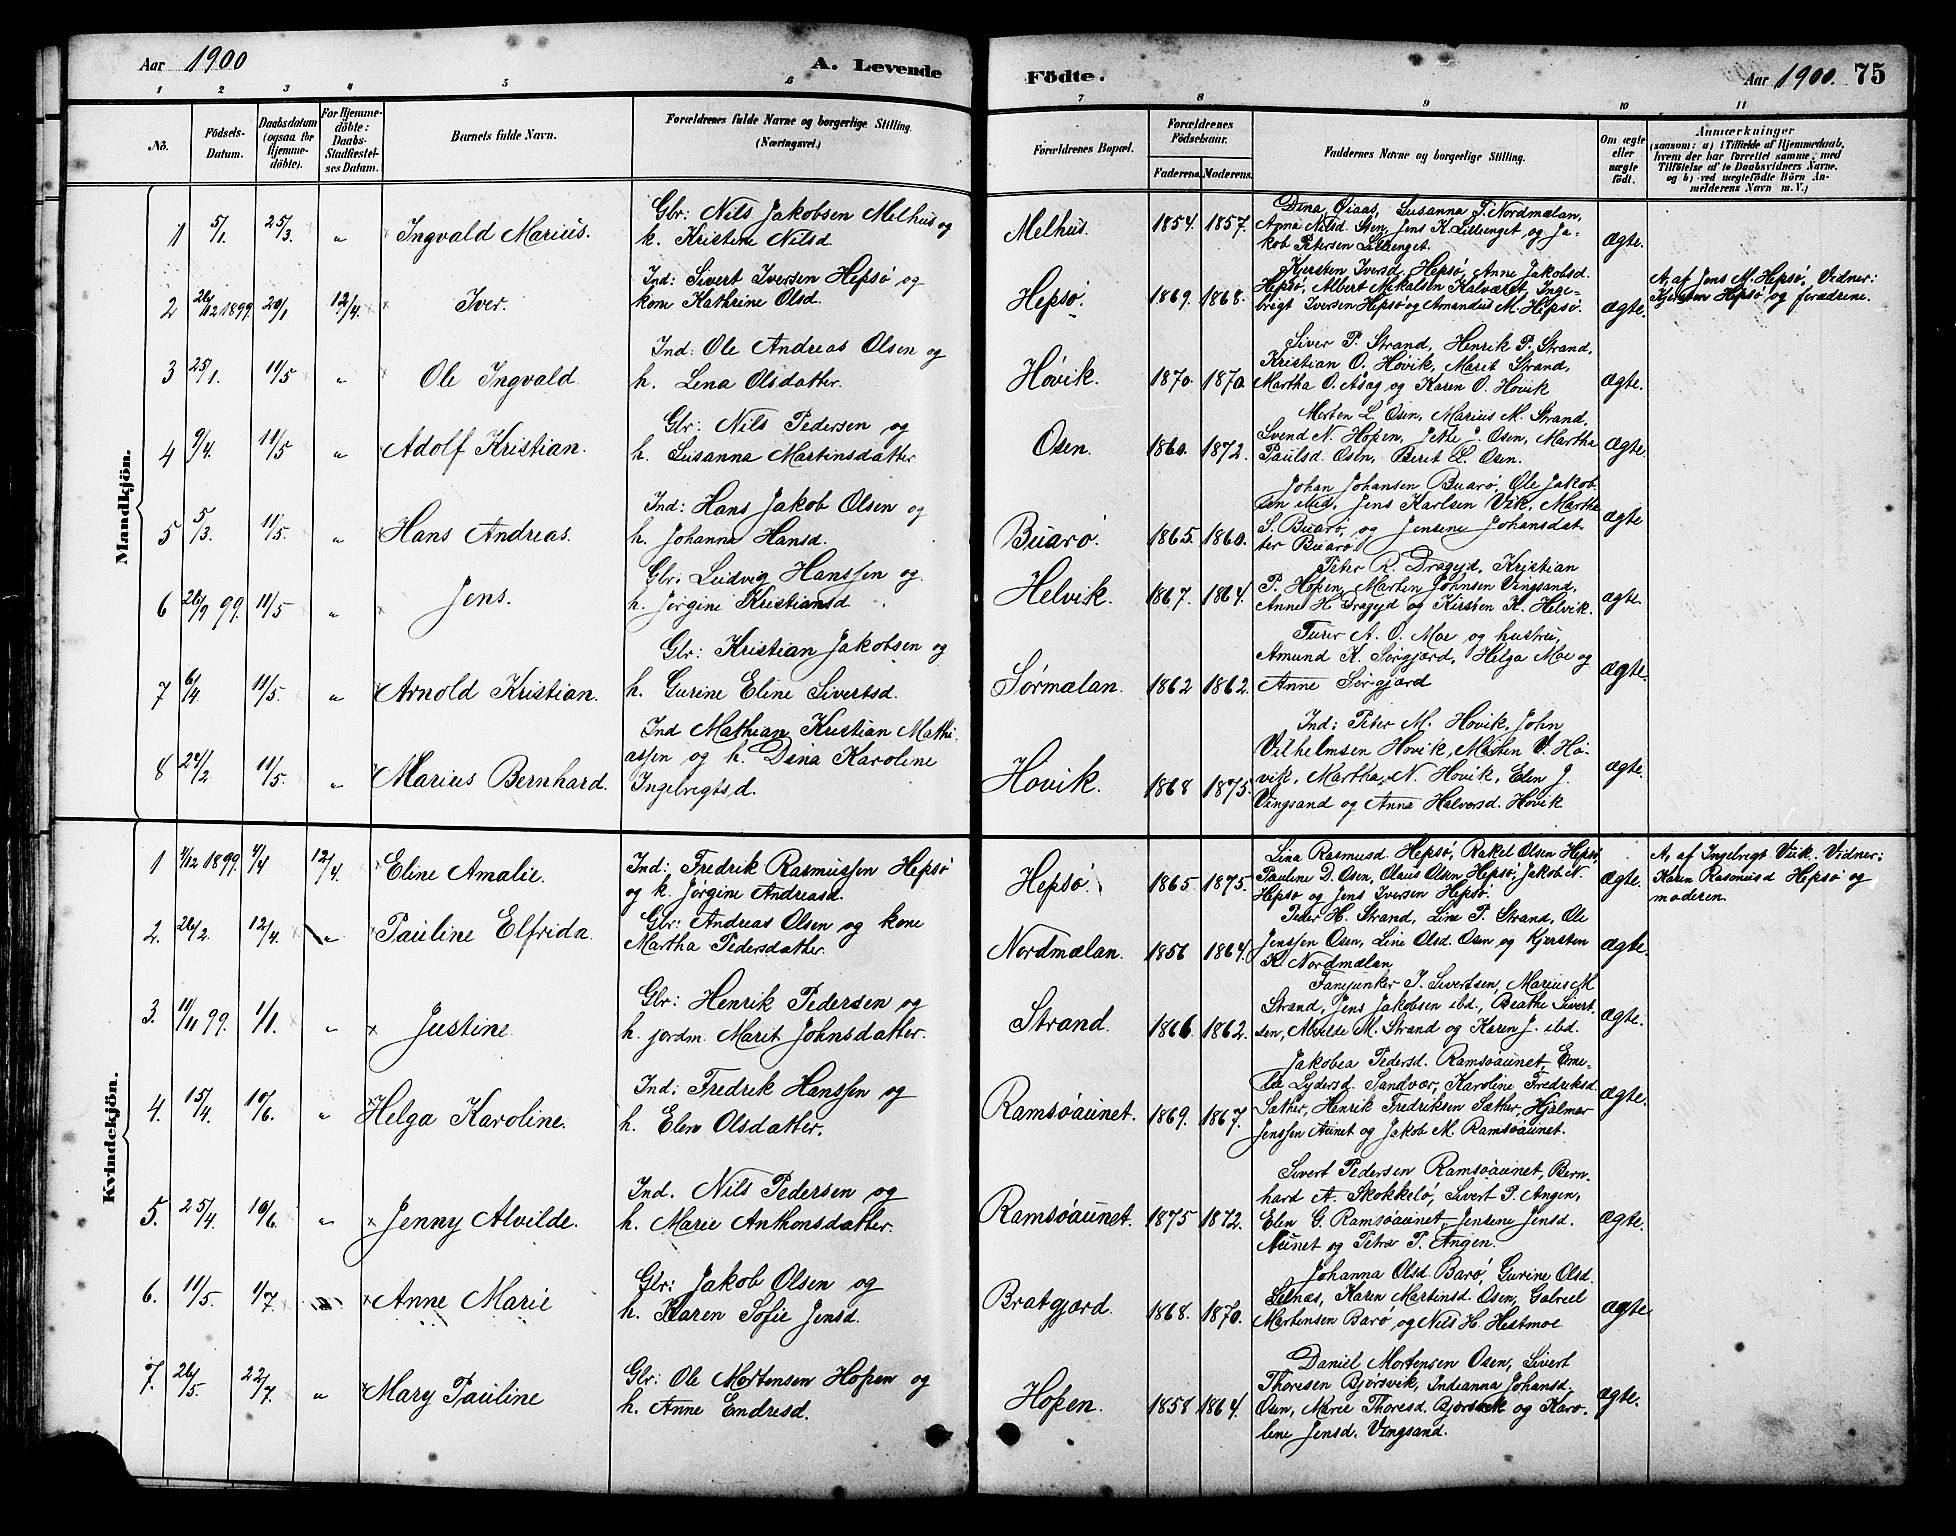 Aar 1900
A. Levende
Födte.
Aar 1900. 75
1 2 3 4 5 6 7 8 9 10 11
No.
Födsels-
Datum.
Daabsdatum
(ogsaa for
Hjemme-
döbte).
For Hjemme-
döbte:
Daabs-
Stadfæstel-
ses Datum.
Barnets fulde Navn.
Forældrenes fulde Navne og borgerlige Stilling.
(Næringsvei.)
Forældrenes Bopæl.
Forældrenes
Födselsaar.
Faderens. Moderens.
Faddernes Navne og borgerlige Stilling.
Om ægte
eller
uægte
födt.
Anmærkninger
(saasom: a) i Tilfælde af Hjemmedaab,
hvem der har forrettet samme, med
Tilföielse af to Daabsvidners Navne.
og b) ved uægtefödte Börn An-
melderens Navn m. V.)
Mandkjön.
1 5/1. 25/3. " Ingvald Marius.
Gbr: Nils Jakobsen Melhus og
k. Kristine Nilsd.
Melhus. 1854. 1857.
Susanna P. Nordmælan,
Anna Nilsd. Sten, Jens K. Lilleenget og Ja-
kob Petersen Lilleenget.
Ægte.
2 26/12 1899. 20/1 12/4. Iver.
Ind: Sivert Iversen Hepsö og
kone Kathrine Olsd.
Hepsö. 1869. 1868.
Kjersten Iversd. Hepsö, Anne Jakobsd.
Hepsö, Albert Mikalsen Kalværet, Inge-
brigt Iversen Hepsö og Amandus M. Hepsö.
Ægte.
A, af Jens M. Hepsö. Vidner:
Kjersten Hepsö og forældrene.
3 25/1. 10/5 " Ole Ingvald
Ind: Ole Andreas Olsen og
h. Lena Olsdatter.
Hövik. 1870. 1870.
Siver P. Strand, Henrik P. Strand,
Kristian O. Hövik, Marit Strand,
Martha O. Aság og Karen O. Hövik
Ægte.
4 9/4. 11/5 " Adolf Kristian.
Glr: Nils Pedersen og
h. Susanna Martinsdatter
Osen. 1860. 1872.
Morten L. Osen, Marius M. Strand,
Svend N. Hopen, J. Osen, Martha
Paulsd. Osen, Berit L. Osen.
Ægte.
5 5/3. 11/5. " Hans Andreas.
Ind: Hans Jakob Olsen og
h. Johanna Hansd.
Buarö. 1865. 1860.
Johan Johansen Buarö, Ole Jakob-
sen ibid, Jens Karlsen Vik, Martha
S. Buarö, og Jensine Johansdat-
ter Buarö.
Ægte
6 26/9 99. 11/5 " Jens.
Glr: Ludvig Hanssen og
h. Jörgine Kristiansd.
Helvik. 1867. 1864.
Peter R. Drageid, Kristian
P. Hopen, Martin Johnsen Vingsand,
Anne H. Drageid og Kirsten K. Helvik.
Ægte.
7 6/4. 11/5. " Arnold Kristian.
Glr: Kristian Jakobsen og
h. Gurine Eline Sivertsd.
Sörmælan. 1862 1862.
A. O. Moe og hustru,
Amund K. Sörgjærd, Helga Moe og
Anne Sörgjærd
Ægte.
8 24/2. 11/5. " Marius Bernhard.
Ind Mathian Kristian Mathi-
assen og h. Dina Karoline
Ingebrigtsd.
Hovik. 1868 1875.
Ind: Peter M. Hovik, John
Vilhelmsen Hovik, Morten V. Hö-
vik, Martha N. Hovik, Elen J.
Vingsand og Anna Halvorsd. Hövik
Ægte.
Kvindekjön.
1 4/12 1899. 4/4 12/4. Eline Amalie.
Ind: Fredrik Rasmussen Hepsö
og k. Jörgine Andreasd.
Hepsö. 1865 1875.
Lina Rasmusd. Hepsö, Rakel Olsen Hepsö
Pauline D. Osen, Olaus Olsen Hepsö, Jakob N.
Hepsö og Jens Iversen Hepsö.
Ægte.
A, af Ingebrigt Viik. Vidner:
Karen Rasmusd Hepsö og
moderen.
2. 26/2. 12/4. " Pauline Elfrida.
Gbr: Andreas Olsen og kone
Martha Pedersdatter.
Nordmælan. 1856 1864.
Peder H. Strand, Line P. Strand, Ole
Jenssen Osen, Line Olsd. Osen og Kjersten
K. Nordmælan
Ægte.
3. 11/11 99. 1/1. " Justine.
Glr: Henrik Pedersen og
h. jordm. Marit Johnsdatter.
Strand. 1866. 1862.
Fanejunker I. Sivertsen, Marius M.
Strand, Jens Jakobsen ibd, Beathe Sivert-
sen, M. Strand og Karen J. ibd.
Ægte.
4. 15/4. 10/6. " Helga Karoline.
Ind: Fredrik Hanssen og
h. Elen Olsdatter.
Ramsöaunet. 1869. 1867.
Jakobea Pedersd. Ramsöaunet, Eme-
lie Lydersd. Sandvær, Karoline Fredriksd.
Sæther, Henrik Fredriksen Sæther, Hjalmar
Jenssen Aunet og Jakob M. Ramsöaunet.
Ægte.
5. 25/4. 10/6. " Jenny Alvilde.
Ind. Nils Pedersen og
h. Marie Anthonsdatter.
Ramsöaunet. 1875 1872.
Sivert Pedersen Ramsöaunet, Bern-
hard A. Skokkelö, Sivert P. Angen,
Elen G. Ramsöaunet, Jensine Jensd.
Aunet og Petra P. Angen.
Ægte.
6. 11/5. 1/7. Anne Marie
Glr: Jakob Olsen og
h. Karen Sofie Jensd.
Bratgjærd. 1868. 1870.
Johanna Olsd. Barö, Gurine Olsd.
Karen Martinsd. Osen, Gabriel
Martensen Barö og Nils H. Hestmoe
Ægte
7. 26/5. 22/7. " Mary Pauline
Glr: Ole Mortensen Hopen og
h. Anne Endresd.
Hopen. 1858 1864.
Daniel Mortensen Osen, Sivert
Thoresen Bjørsvik, Indianna Johansd.
Osen, Marie Thoresd. Bjørsvik og Karo-
line Jensd. Vingsand.
Ægte.